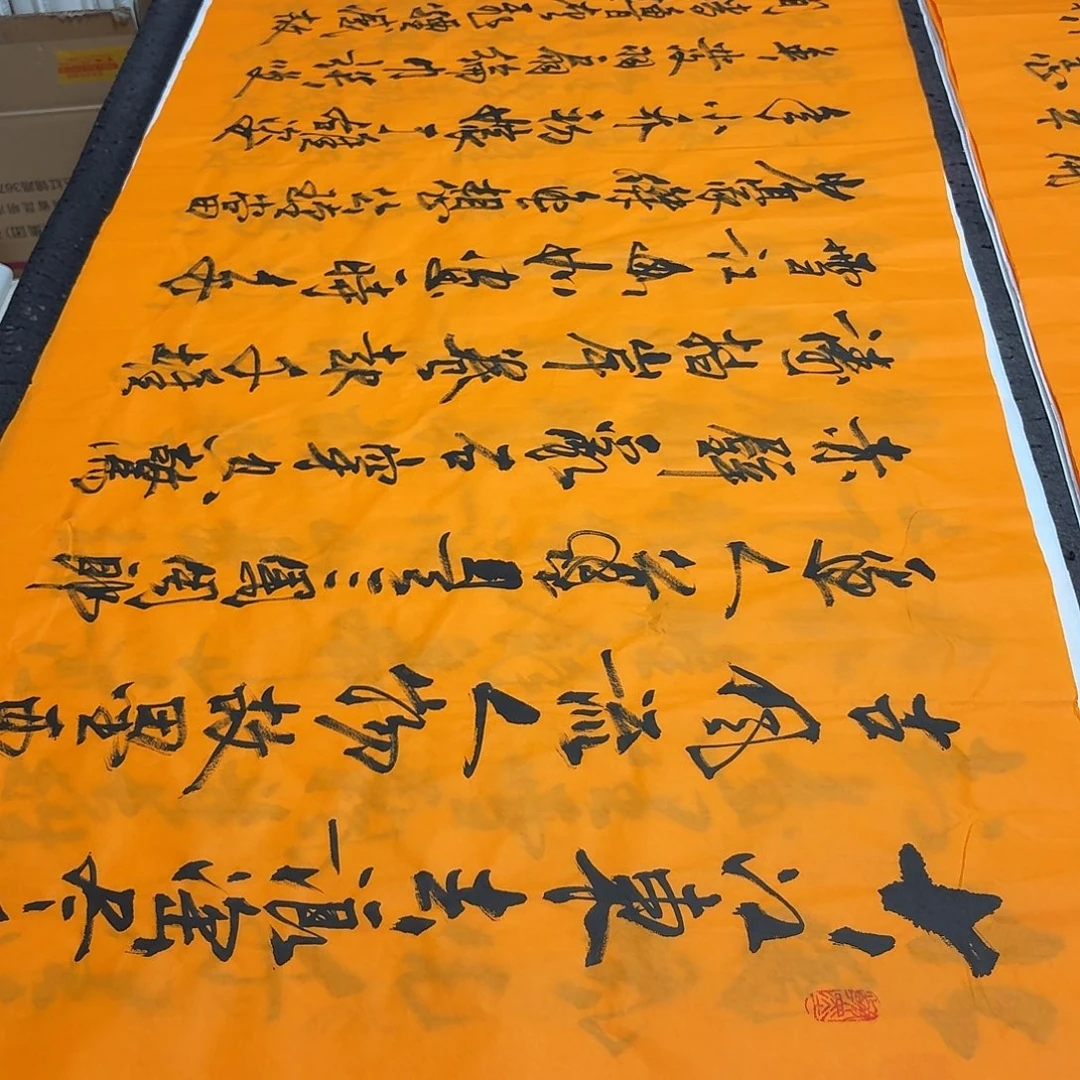 大江東去浪淘盡
古風流人物故壘西
邊人道是三國周郎
赤壁亂石穿空驚
濤拍岸捲起千堆
雪江山如畫一時多
少豪傑遥想公瑾當
年小喬初嫁了雄姿
英發羽扇綸巾談笑
間檣櫓灰飛煙滅故